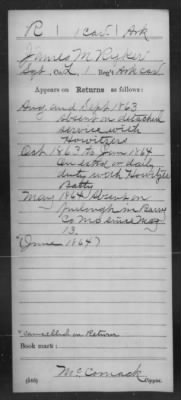 R | 1 Cav. | Ark
James M. Ryker
Sgt, Co. L, 1 Reg't Ark Cav
Appears on Returns as follows:
Aug and Sept 1863
absent on detached
service with
Howitzers
Oct 1863 to Jan 1864
on daily
duty with Howitzer
Batty
May 1864 absent on
furlough in Barry
Co Mo since May
13.
(June 1864)
*cancelled on Return
Book mark:
McComack
(546) Copyist.